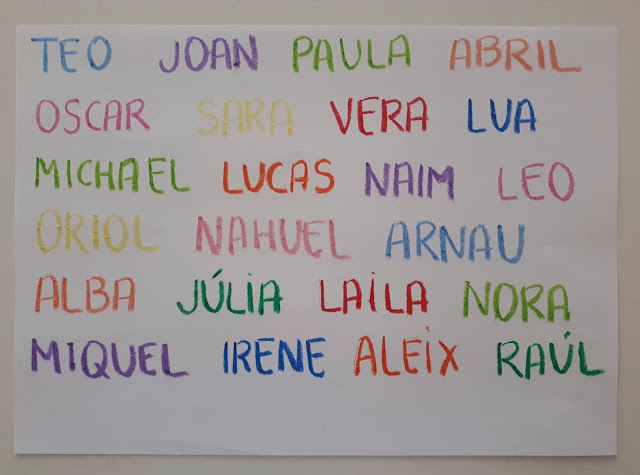 TEO JOAN PAULA ABRIL
OSCAR SARA VERA LUA
MICHAEL LUCAS NAIM LEO
ORIOL NAHUEL ARNAU
ALBA JÚLIA LAILA NORA
MIQUEL IRENE ALEIX RAÚL